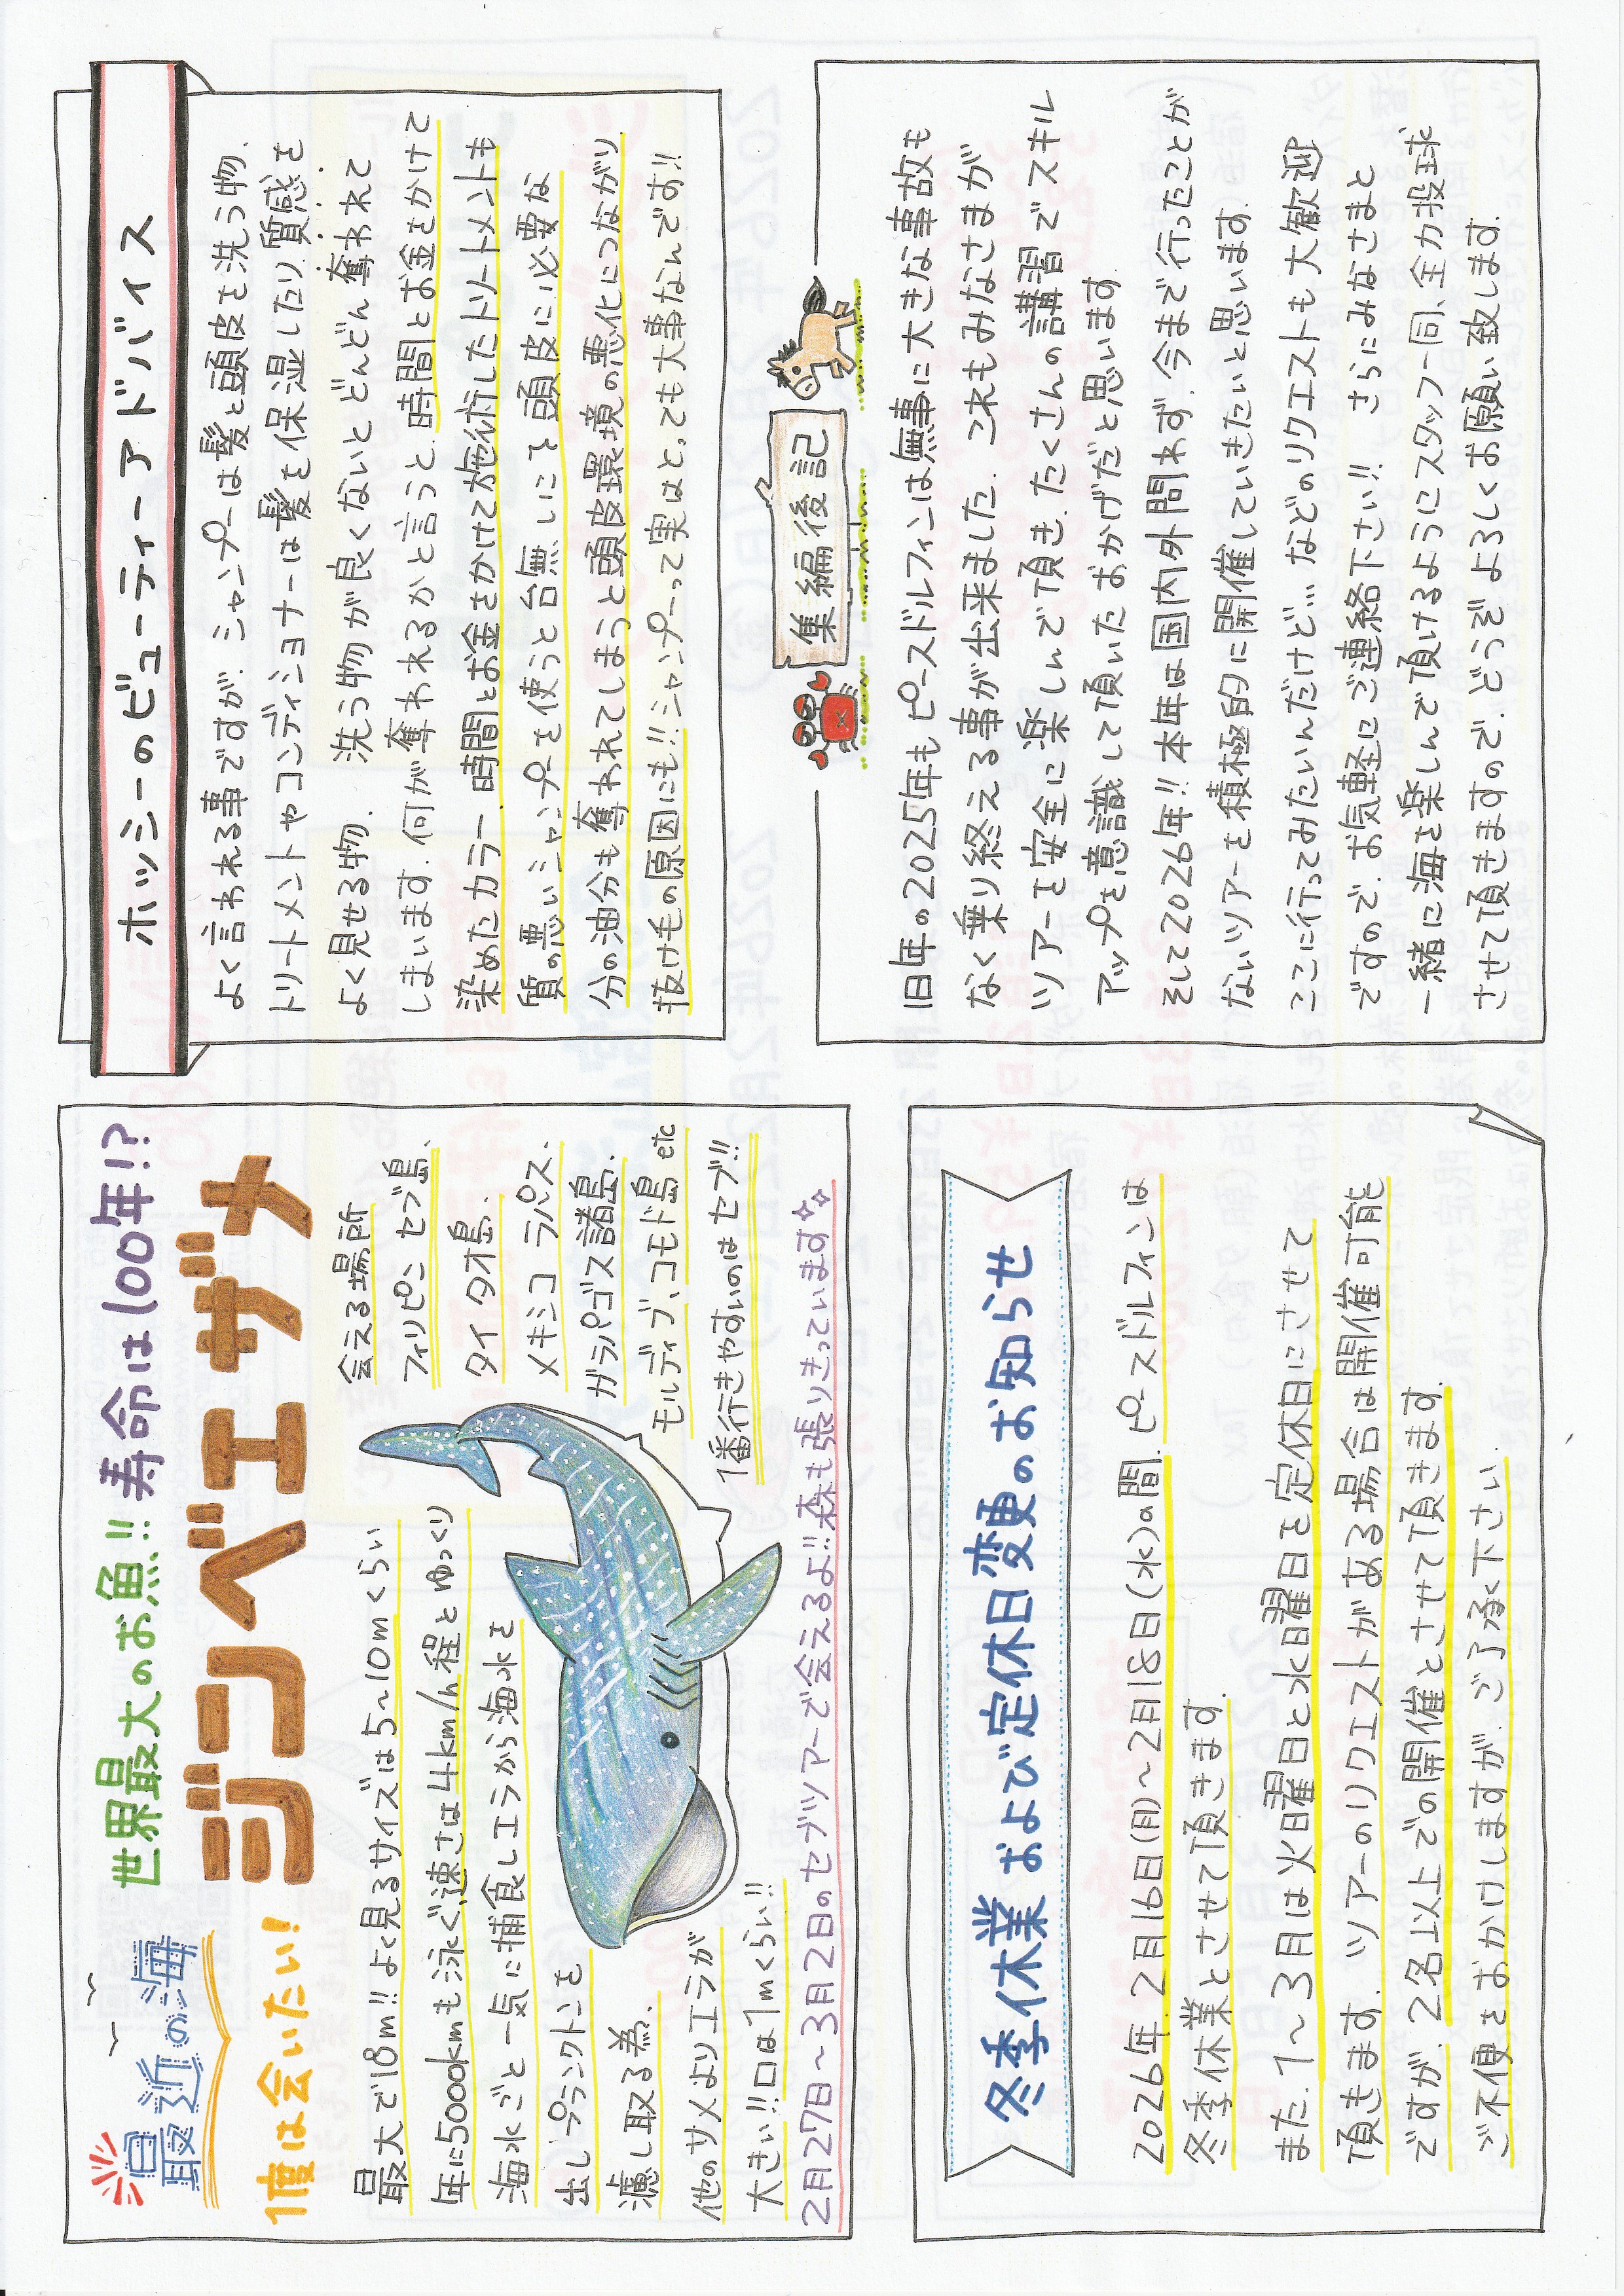 最近の海
世界最大のお魚!! 寿命は100年!?
1度は会いたい!
ジンベエザメ
最大で18m!! よく見るサイズは5~10mくらい
年に5000kmも泳ぐ、速さは4km/h程とゆっくり
海水ごと一気に捕食しエラから海水を
出しプランクトンを
濾し取る為、
他のサメよりエラが
大きい!!口は1mくらい!!
会える場所
フィリピン セブ島、
タイ タオ島、
メキシコ ラパス、
ガラパゴス諸島、
モルディブ、コモド島 etc
1番行きやすいのはセブ!!
2月27日~3月2日のセブツアーで会えるよ!!森も張りきっています
冬季休業 および定休日変更のお知らせ
2026年、2月16日(月)~2月18日(水)の間、ピースドルフィンは
冬季休業とさせて頂きます。
また、1~3月は火曜日と水曜日を定休日にさせて
頂きます。ツアーのリクエストがある場合は開催可能
ですが、2名以上での開催とさせて頂きます。
ご不便をおかけしますが、ご了承下さい。
ホッシーのビューティーアドバイス
よく言われる事ですが、シャンプーは髪と頭皮を洗う物、
トリートメントやコンディショナーは髪を保湿したり、質感を
よく見せる物、 洗う物が良くないとどんどん奪われて
しまいます。何が奪われるかと言うと、時間とお金をかけて
染めたカラー、時間とお金をかけて施術したトリートメントも
質の悪いシャンプーを使うと台無しにⅡ 頭皮に必要な
分の油分も奪われてしまうと頭皮環境の悪化につながり、
抜け毛の原因にも!!シャンプーって実はとっても大事なんです!!
集編後記
旧年の2025年もピースドルフィンは無事に大きな事故も
なく乗り終える事が出来ました。これもみなさまが
ツアーを安全に楽しんで頂き、たくさんの講習でスキル
アップを意識して頂いたおかげだと思います。
そして2026年!!本年は国内外問わず、今まで行ったことが
ないツアーを積極的に開催していきたいと思います。
ここに行ってみたいんだけど…などのリクエストも大歓迎
ですので、お気軽にご連絡下さい!! さらにみなさまと
一緒に海を楽しんで頂けるようにスタッフ一同、全力投球
させて頂きますので、どうぞよろしくお願い致します。